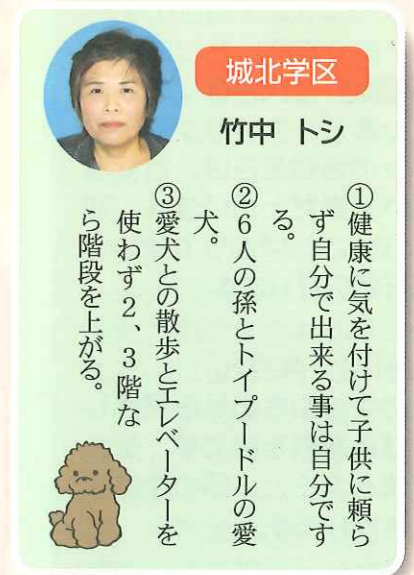 城北学区
竹中 トシ
①健康に気を付けて子供に頼ら
ず自分で出来る事は自分です
る。
②6人の孫とトイプードルの愛
犬。
③愛犬との散歩とエレベーターを
使わず2、3階な
ら階段を上がる。